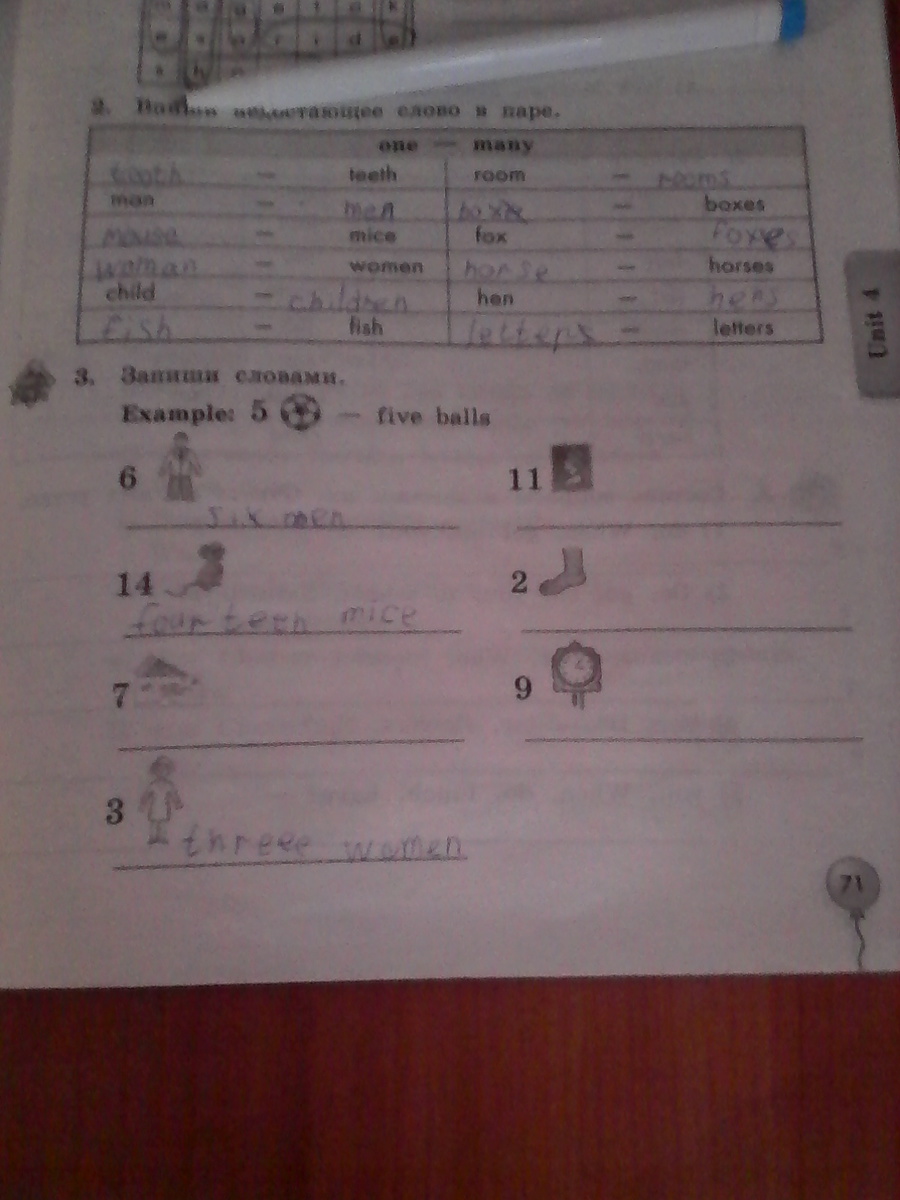 2. недостающее слово в паре.
one — many
tooth — teeth room — rooms
man — men box — boxes
mouse — mice fox — foxes
woman — women horse — horses
child — children hen — hens
fish — fish letters — letters
Unit 4
3. Запиши словами.
Example: 5 — five balls
6 11
six men
14 2
fourteen mice
7 9
3
threee women
71